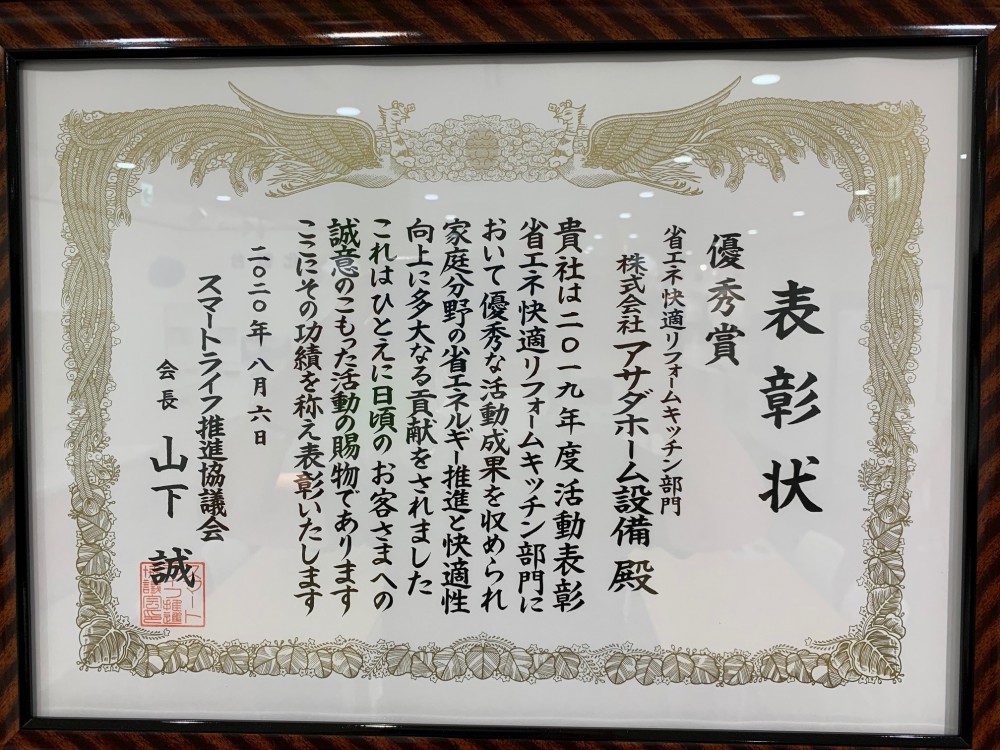 表彰状
優秀賞
省エネ快適リフォームキッチン部門
株式会社アサダホーム設備 殿
貴社は二〇一九年度活動表彰
省エネ快適リフォームキッチン部門に
おいて優秀な活動成果を収められ
家庭分野の省エネルギー推進と快適性
向上に多大なる貢献をされました
これはひとえに日頃のお客さまへの
誠意のこもった活動の賜物であります
ここにその功績を称え表彰いたします
二〇二〇年八月六日
スマートライフ推進協議会
会長 山下 誠